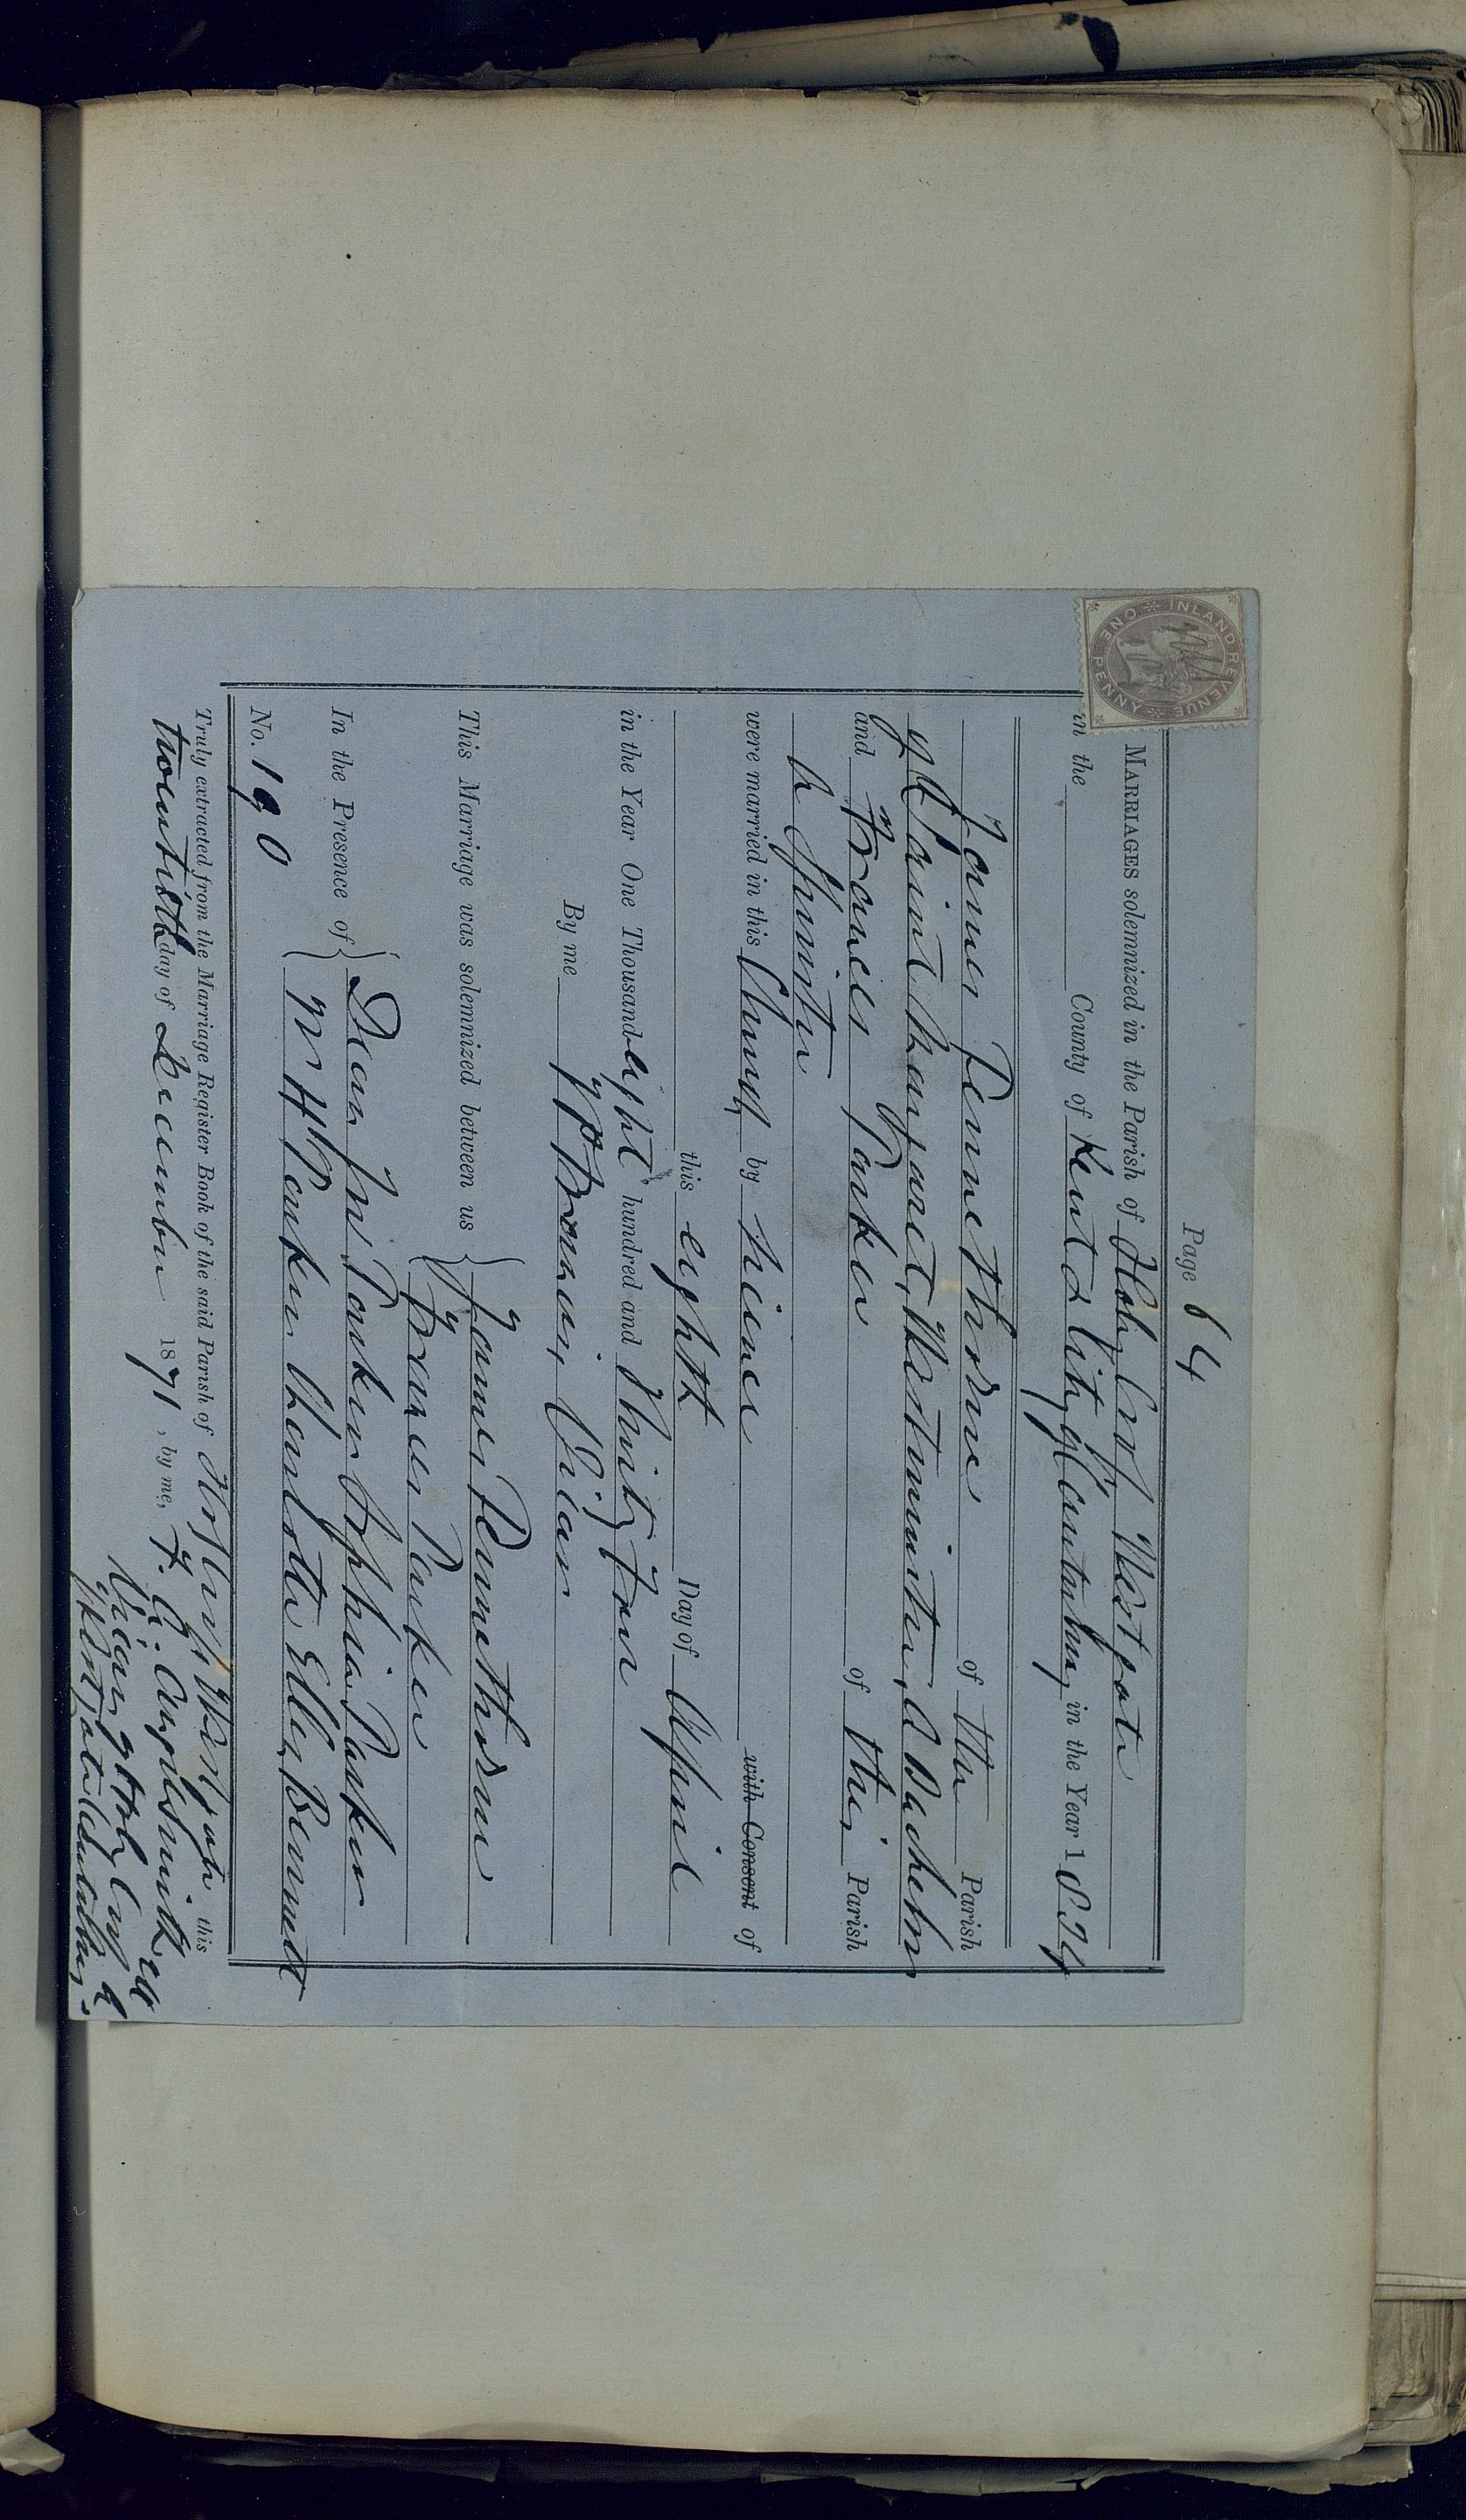 Page 64
MARRIAGES solemnized in the Parish of Holy Cross Westgate
in the County of Kent & City of Canterbury in the Year 1834
James Pennethorne of the Parish
of Saint Margaret, Westminster, a Bachelor
and Frances Parker of this Parish
a Spinster
were married in this Church by Licence with Consent of
this eighth Day of April
in the Year One Thousand eight hundred and Thirty four
By me Vicar
This Marriage was solemnized between us { James Pennethorne
Frances Parker
In the Presence of { Dean Jno Parker Sophia Parker
W H Parker Charlotte Ellen Bennett
No. 190
Truly extracted from the Marriage Register Book of the said Parish of Holy + Westgate this
twentieth day of December 1871, by me,
Vicar of Holy Cross
Westgate Canterbury
INLAND REVENUE
ONE PENNY